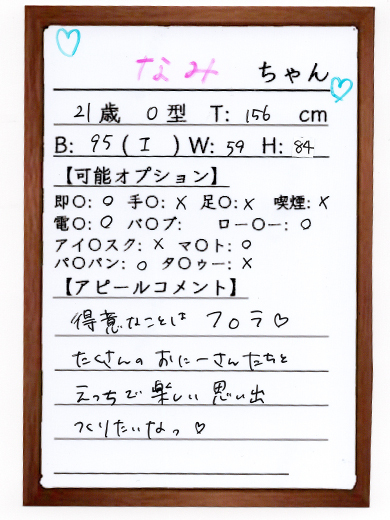 なみ ちゃん
21歳 O型 T: 156 cm
B: 95 ( I ) W: 59 H: 84
【可能オプション】
即〇: 〇 手〇: × 足〇: × 喫煙: ×
電〇: 〇 バ〇ブ: ロー〇ー: 〇
アイ〇スク: × マ〇ト: 〇
パ〇パン: 〇 タ〇ゥー: ×
【アピールコメント】
得意なことは フ〇ラ♡
たくさんの おにーさんたちと
えっちで 楽しい 思い出
つくりたいなっ ♡